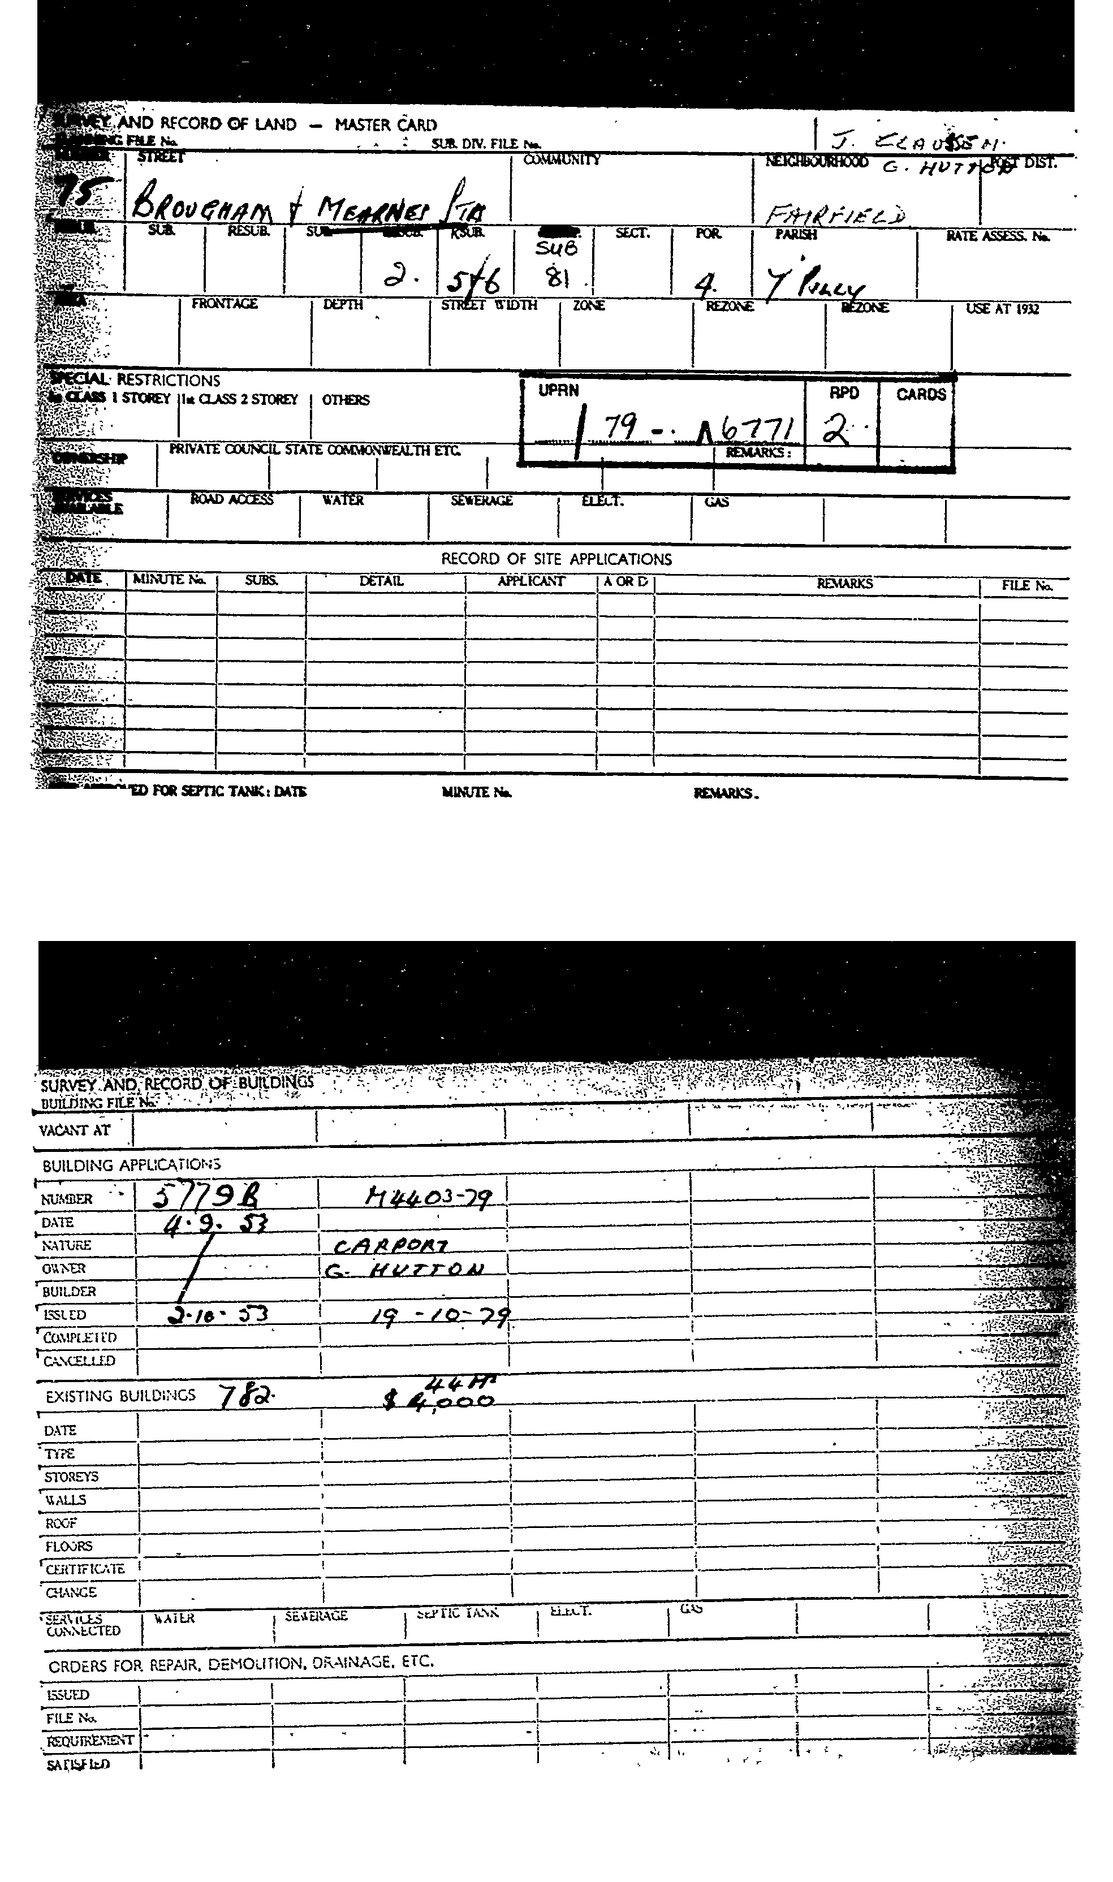 SURVEY AND RECORD OF LAND — MASTER CARD
FILE No. SUB. DIV. FILE No. J. CLAUSSEN.
NUMBER STREET COMMUNITY NEIGHBOURHOOD G. HUTTON POST DIST.
75 BROUGHAM & MEARNES STS FAIRFIELD
SUB. RESUB. SUB. RESUB. RSUB. SUB SECT. POR. PARISH RATE ASSESS. No.
2. 5/6 81 4. Y'Pilly
AREA FRONTAGE DEPTH STREET WIDTH ZONE REZONE REZONE USE AT 1932
SPECIAL RESTRICTIONS
1st CLASS 1 STOREY 1st CLASS 2 STOREY OTHERS
UPRN RPD CARDS
/ 79 - A6771 2
OWNERSHIP PRIVATE COUNCIL STATE COMMONWEALTH ETC. REMARKS:
SERVICES AVAILABLE ROAD ACCESS WATER SEWERAGE ELECT. GAS
RECORD OF SITE APPLICATIONS
DATE MINUTE No. SUBS. DETAIL APPLICANT A OR D REMARKS FILE No.
FOR SEPTIC TANK: DATE MINUTE No. REMARKS.
SURVEY AND RECORD OF BUILDINGS
BUILDING FILE No.
VACANT AT
BUILDING APPLICATIONS
NUMBER 5779B M4403-79
DATE 4.9.53
NATURE CARPORT
OWNER G. HUTTON
BUILDER
ISSUED 2.10.53 19-10-79
COMPLETED
CANCELLED
44M²
EXISTING BUILDINGS 782. $4,000
DATE
TYPE
STOREYS
WALLS
ROOF
FLOORS
CERTIFICATE
CHANGE
SERVICES CONNECTED WATER SEWERAGE SEPTIC TANK ELECT. GAS
ORDERS FOR REPAIR, DEMOLITION, DRAINAGE, ETC.
ISSUED
FILE No.
REQUIREMENT
SATISFIED